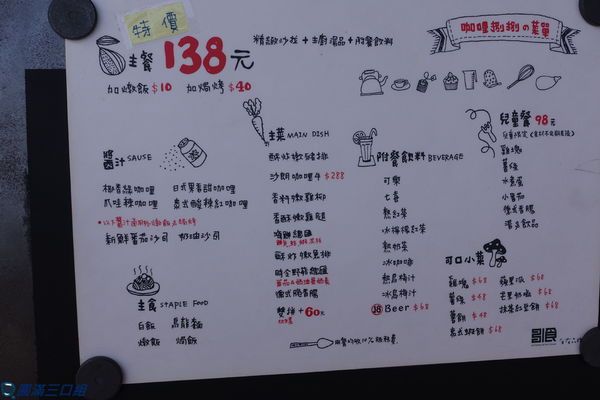 特價
咖哩捌捌の菜單
主餐 138元
精緻沙拉 + 主廚湯品 + 附餐飲料
加燉飯 $10 加焗烤 $40
醬汁 SAUSE
椰香綠咖哩 日式果香甜咖哩
爪哇辣咖哩 泰式酸辣紅咖哩
新鮮番茄沙司 奶油沙司
主食 STAPLE FOOD
白飯 烏龍麵
燉飯 焗飯
主菜 MAIN DISH
酥炸嫩豬排
沙朗咖哩牛 $288
香料嫩雞柳
香酥嫩雞腿
海鮮總匯
酥炸嫩魚排
時令野菇總匯
德式脆香腸
雙拼 + 60元
附餐飲料 BEVERAGE
可樂
七喜
熱紅茶
冰檸檬紅茶
熱奶茶
冰咖啡
熱烏梅汁
冰烏梅汁
18 Beer $68
兒童餐 98元
雞塊
薯條
水煮蛋
小番茄
德式香腸
濃湯飲品
可口小菜
雞塊 $68 蘋果派 $68
薯條 $48 芒果奶酪 $68
薯餅 $48 抹茶紅豆餅 $68
泰式蝦餅 $68
圓滿三口組